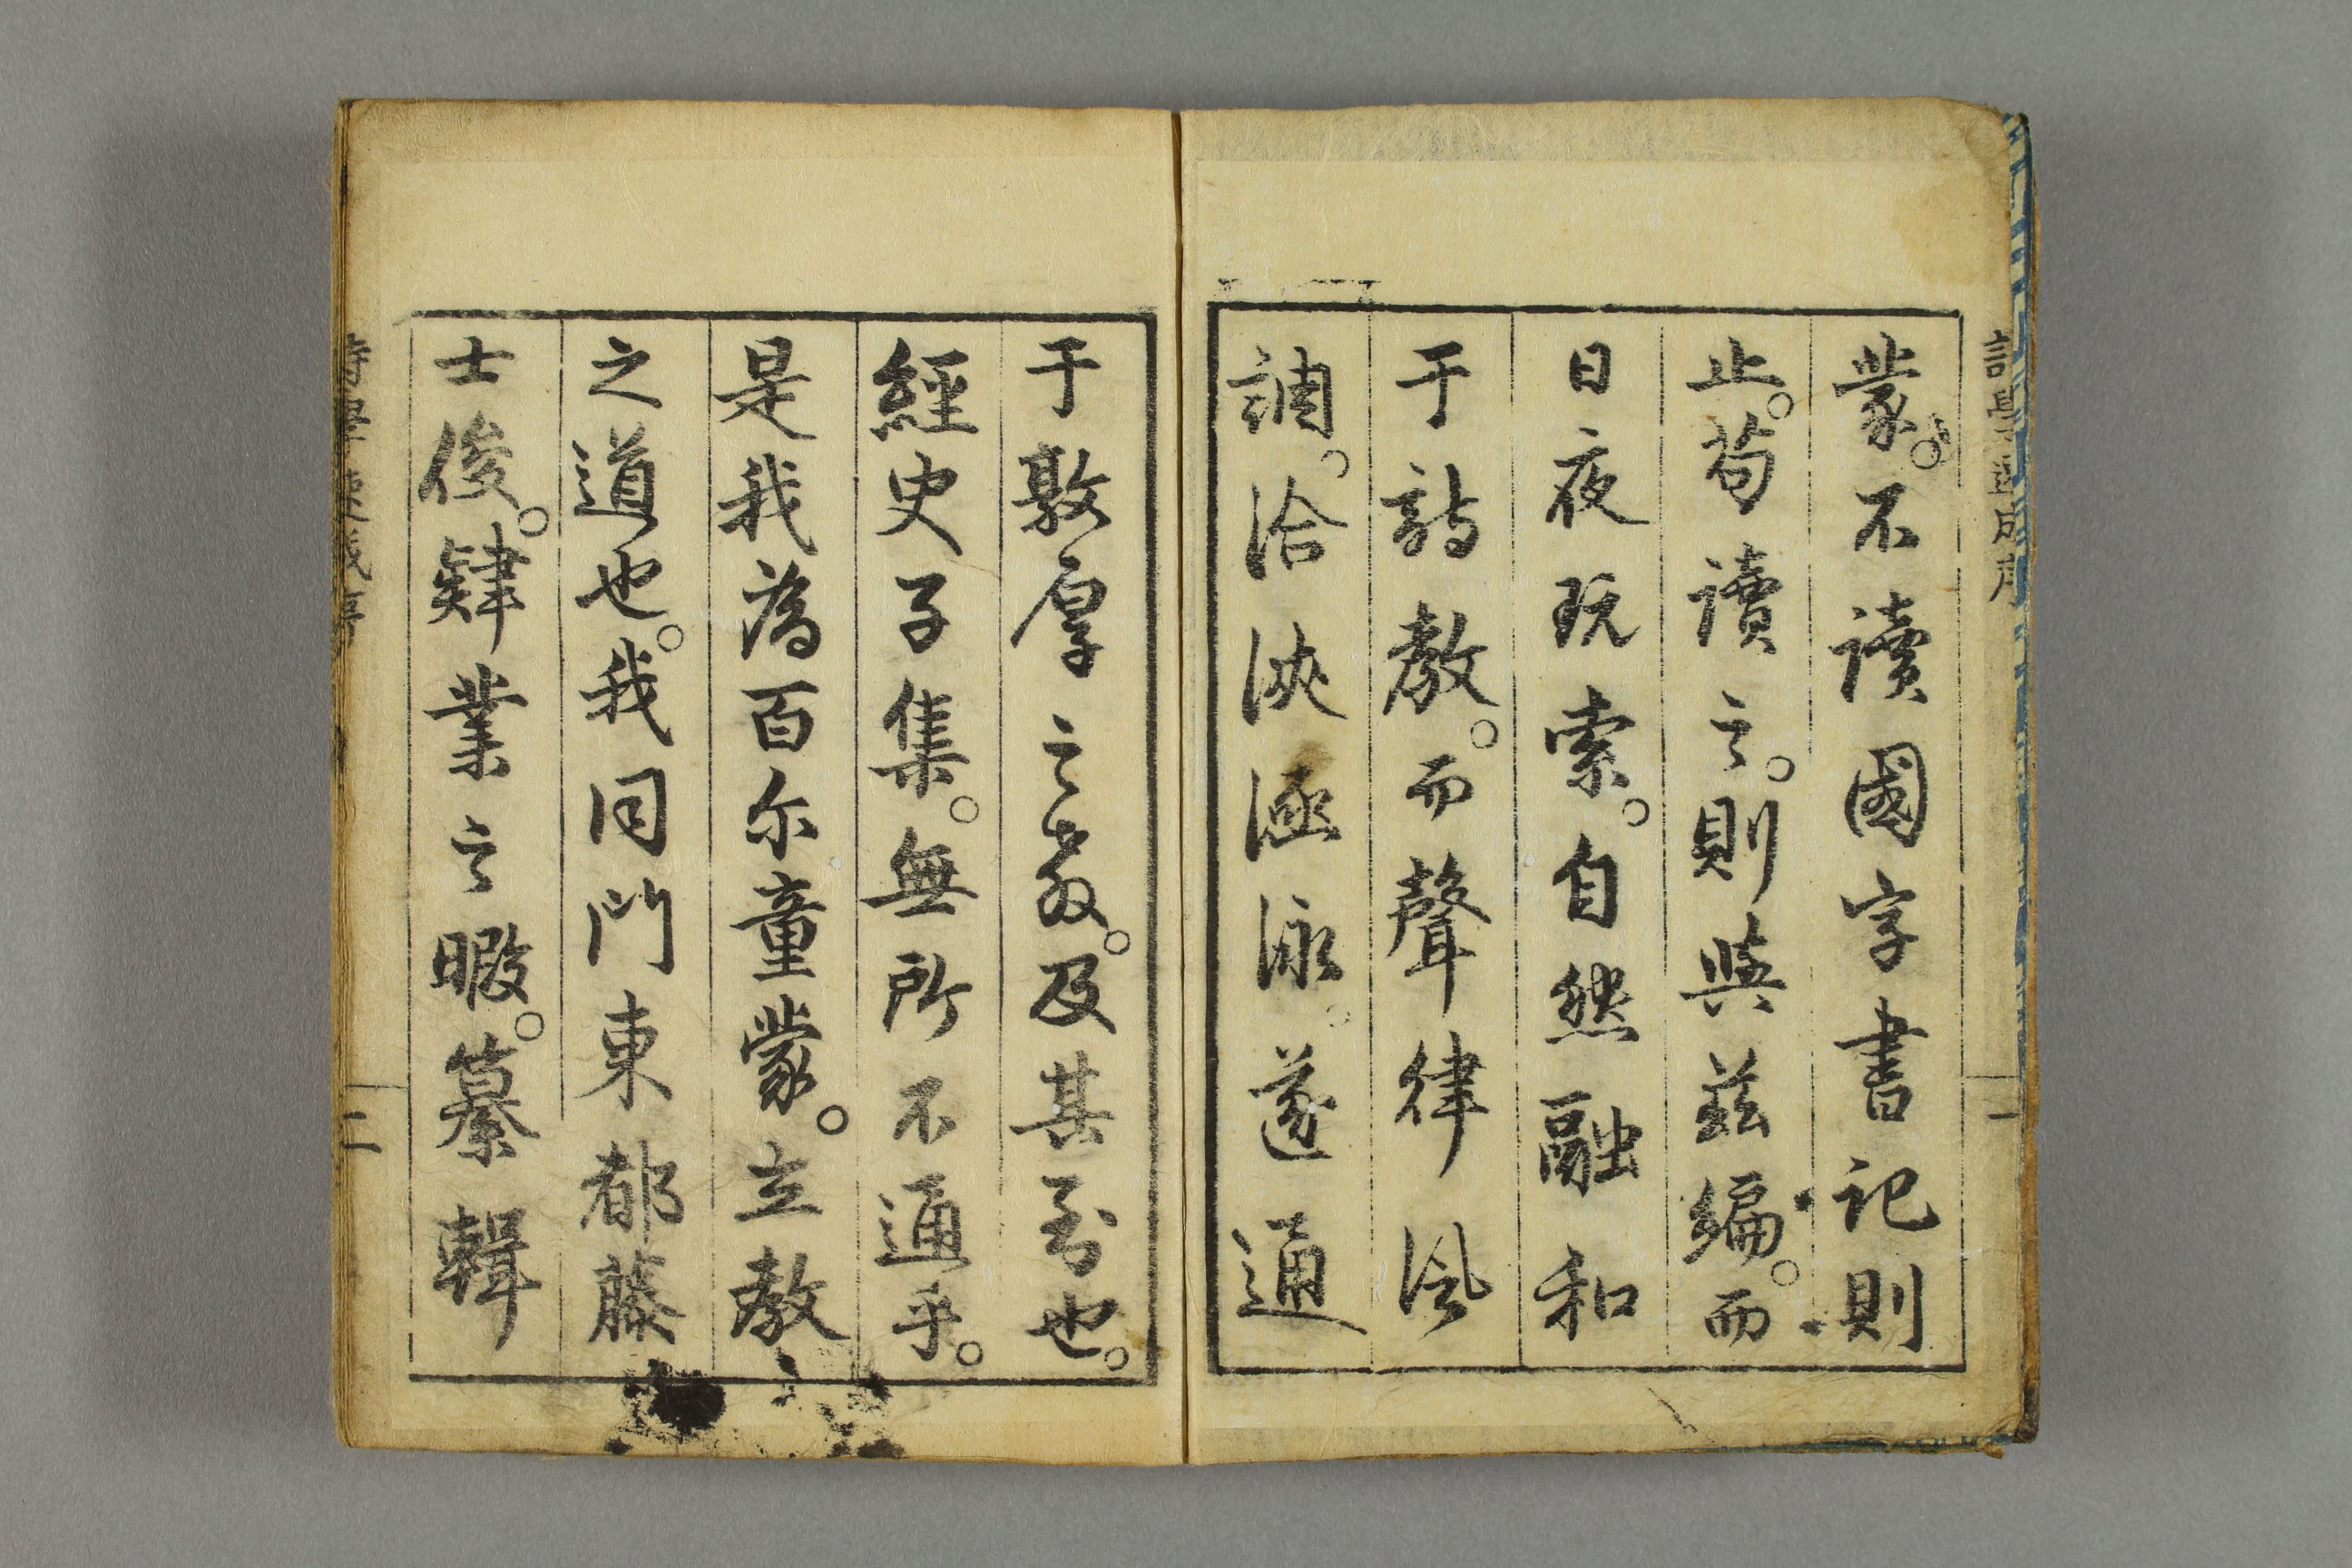 蒙。不讀國字書記則
止。苟讀之。則與茲編。而
日夜玩索。自然融和
于詩教。而聲律風
調。洽浹涵泳。遂通
于敦厚之教。及其至也。
經史子集。無所不通乎。
是我為百尓童蒙。立教
之道也。我同門東都藤
士俊。肄業之暇。纂輯
一
二